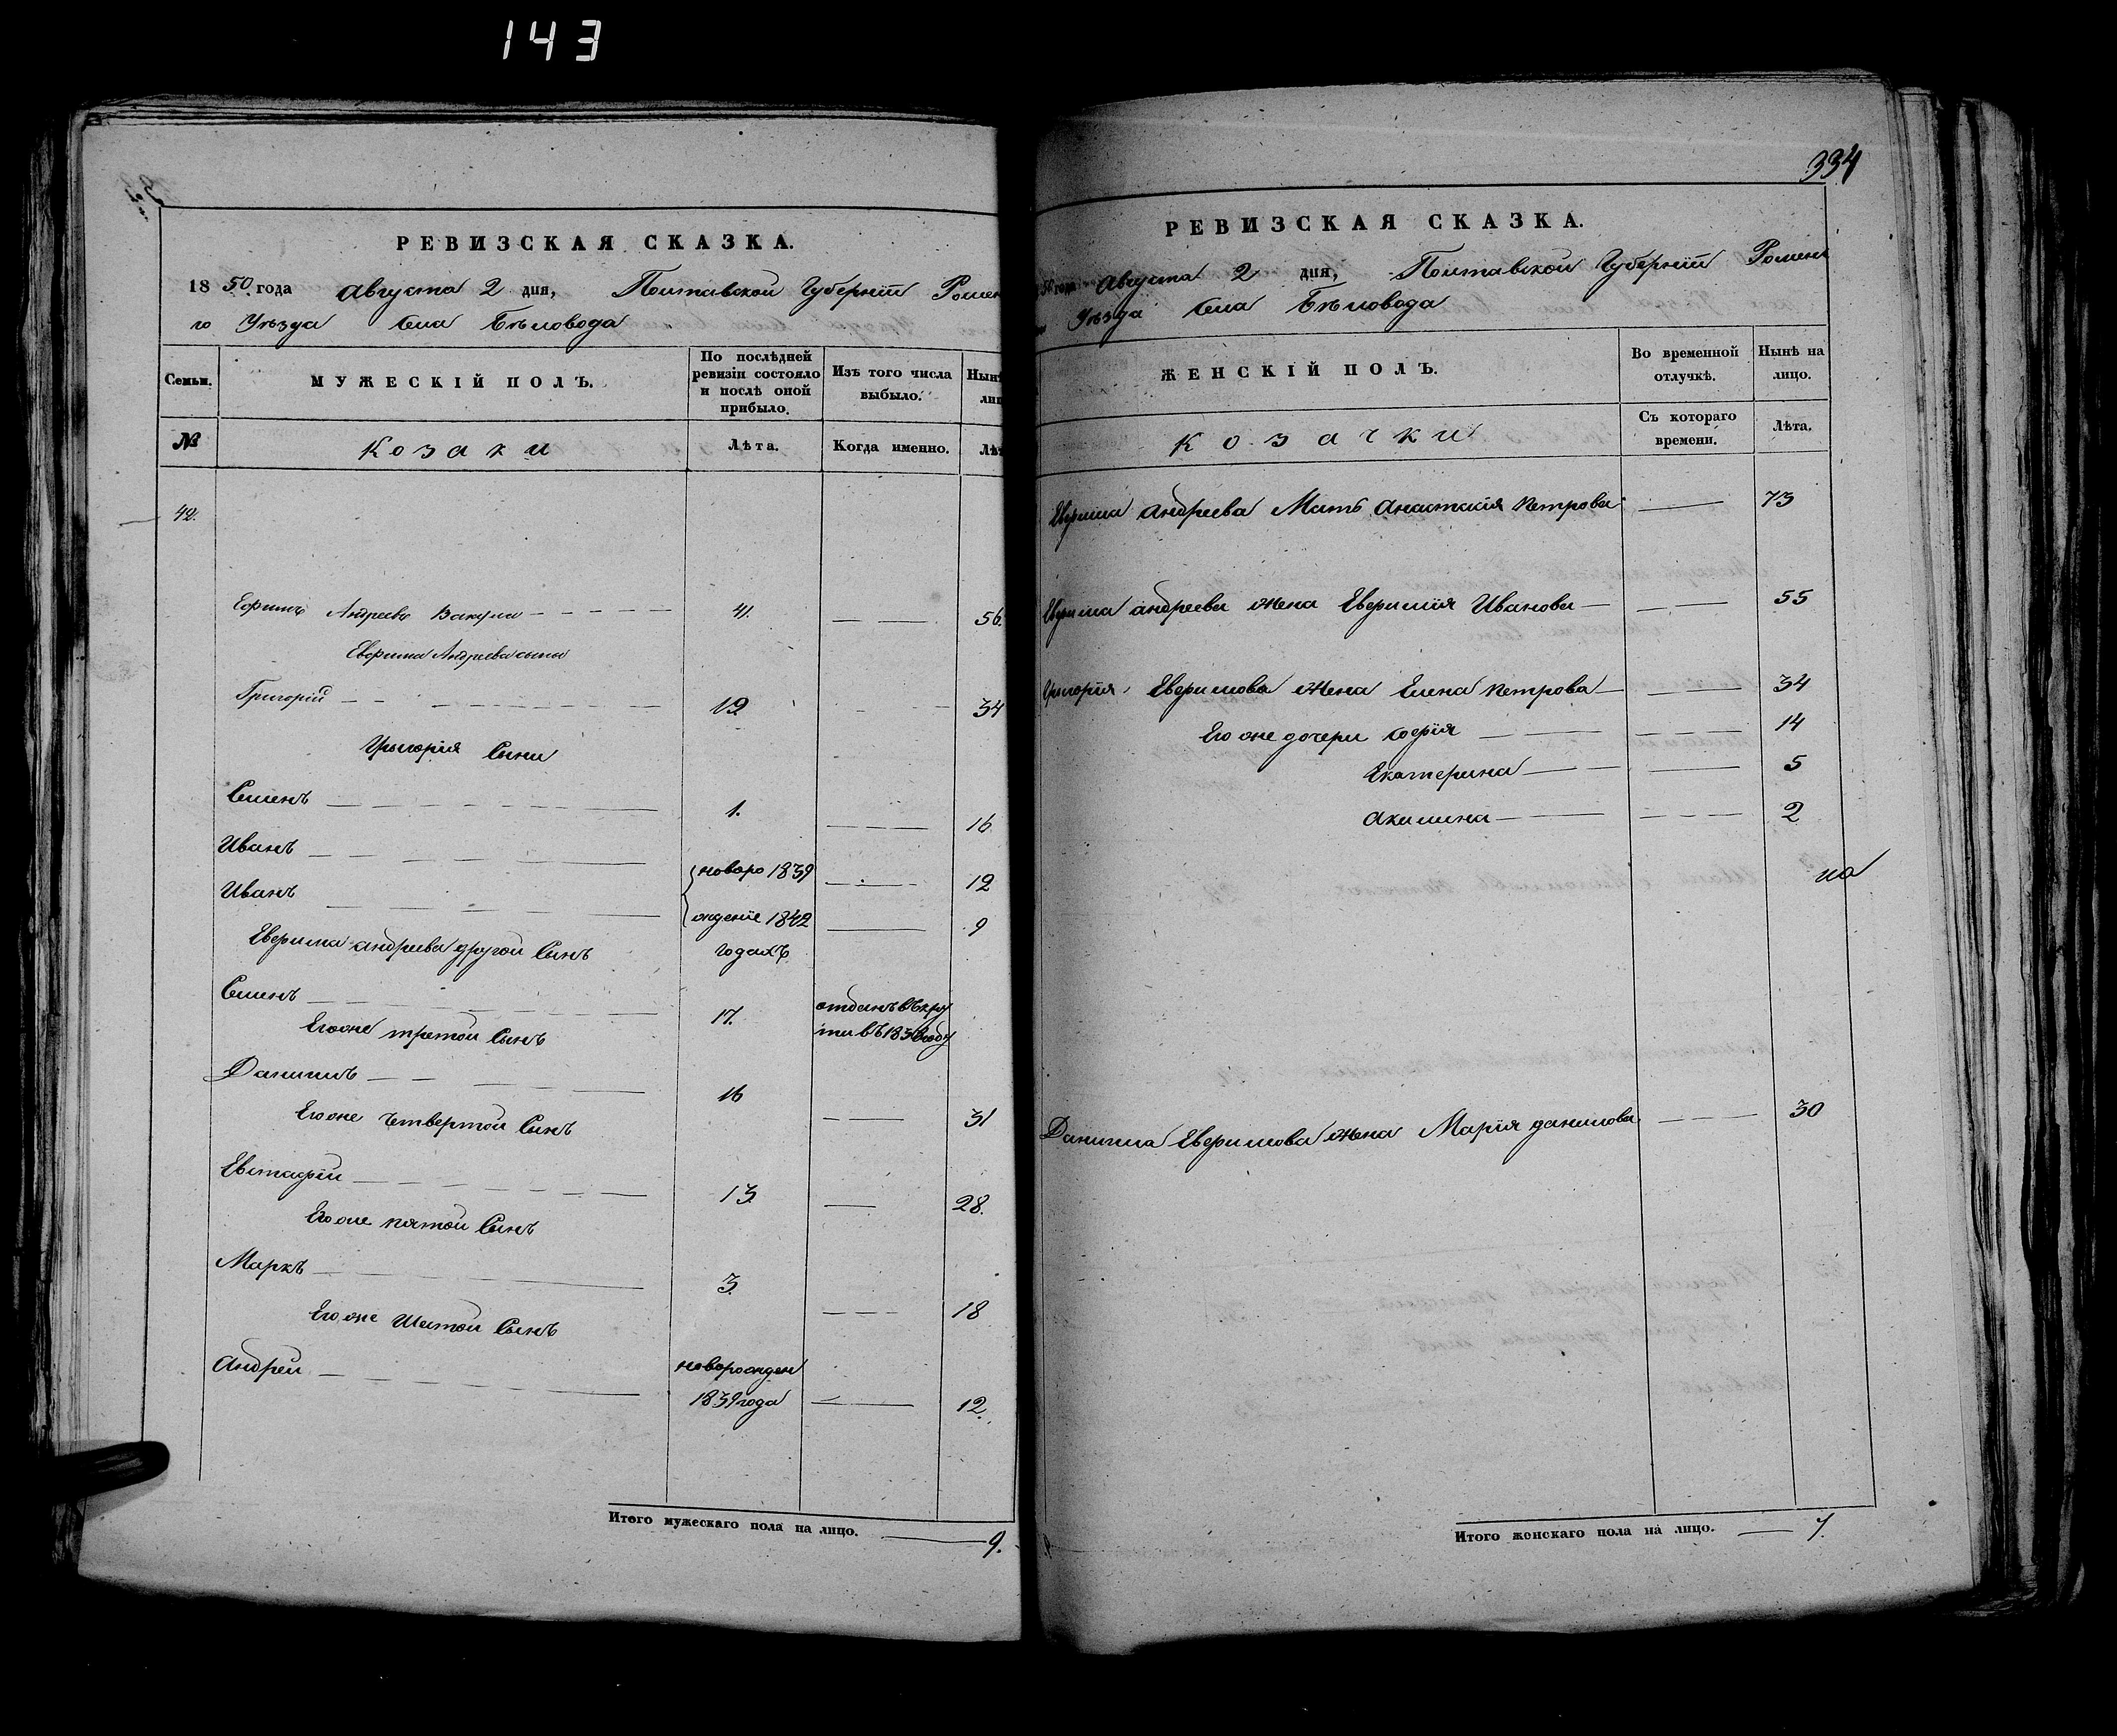 143
РЕВИЗСКАЯ СКАЗКА.
1850 года Августа 2 дня, Полтавской Губерніи Ромен
го Уѣзда Села Бѣловода
Семьи.
МУЖЕСКІЙ ПОЛЪ.
По послѣдней ревизіи состояло и послѣ оной прибыло.
Изъ того числа выбыло.
Нынѣ лиц
№
Козаки
Лѣта.
Когда именно.
Лѣт
42.
Ефимъ Андреевъ Вакула 41. 56.
Евфима Андреева сыны
Григорій 19 34
Григорія Сыны
Семенъ 1. 16
Иванъ новоро 1839 12
Иванъ ждение 1842 9
годахъ
Евфима андреева другой Сынъ
Семенъ 17. отданъ въ
Егоже третой Сынъ
Даниилъ 16 31
Егоже четвертой Сынъ
Евстафій 13 28.
Егоже пятой Сынъ
Маркъ 3. 18
Егоже Шестой Сынъ
Андрей новорожден
1839 года 12.
Итого мужескаго пола на лицо. 9.
334
РЕВИЗСКАЯ СКАЗКА.
50 года Августа 2 дня, Полтавской Губерніи Ромен
Уѣзда Села Бѣловода
ЖЕНСКІЙ ПОЛЪ.
Во временной отлучкѣ.
Нынѣ на лицо.
Козачки
Съ котораго времени.
Лѣта.
Евфима Андреева Мать Анастасія Петрова 73
Евфима андреева жена Евфимія Иванова 55
Григорія Евфимова жена Елена Петрова 34
Его же дочери Софія 14
Екатерина 5
Акилина 2
Даниила Евфимова жена Марія данилова 30
Итого женскаго пола на лицо. 7.